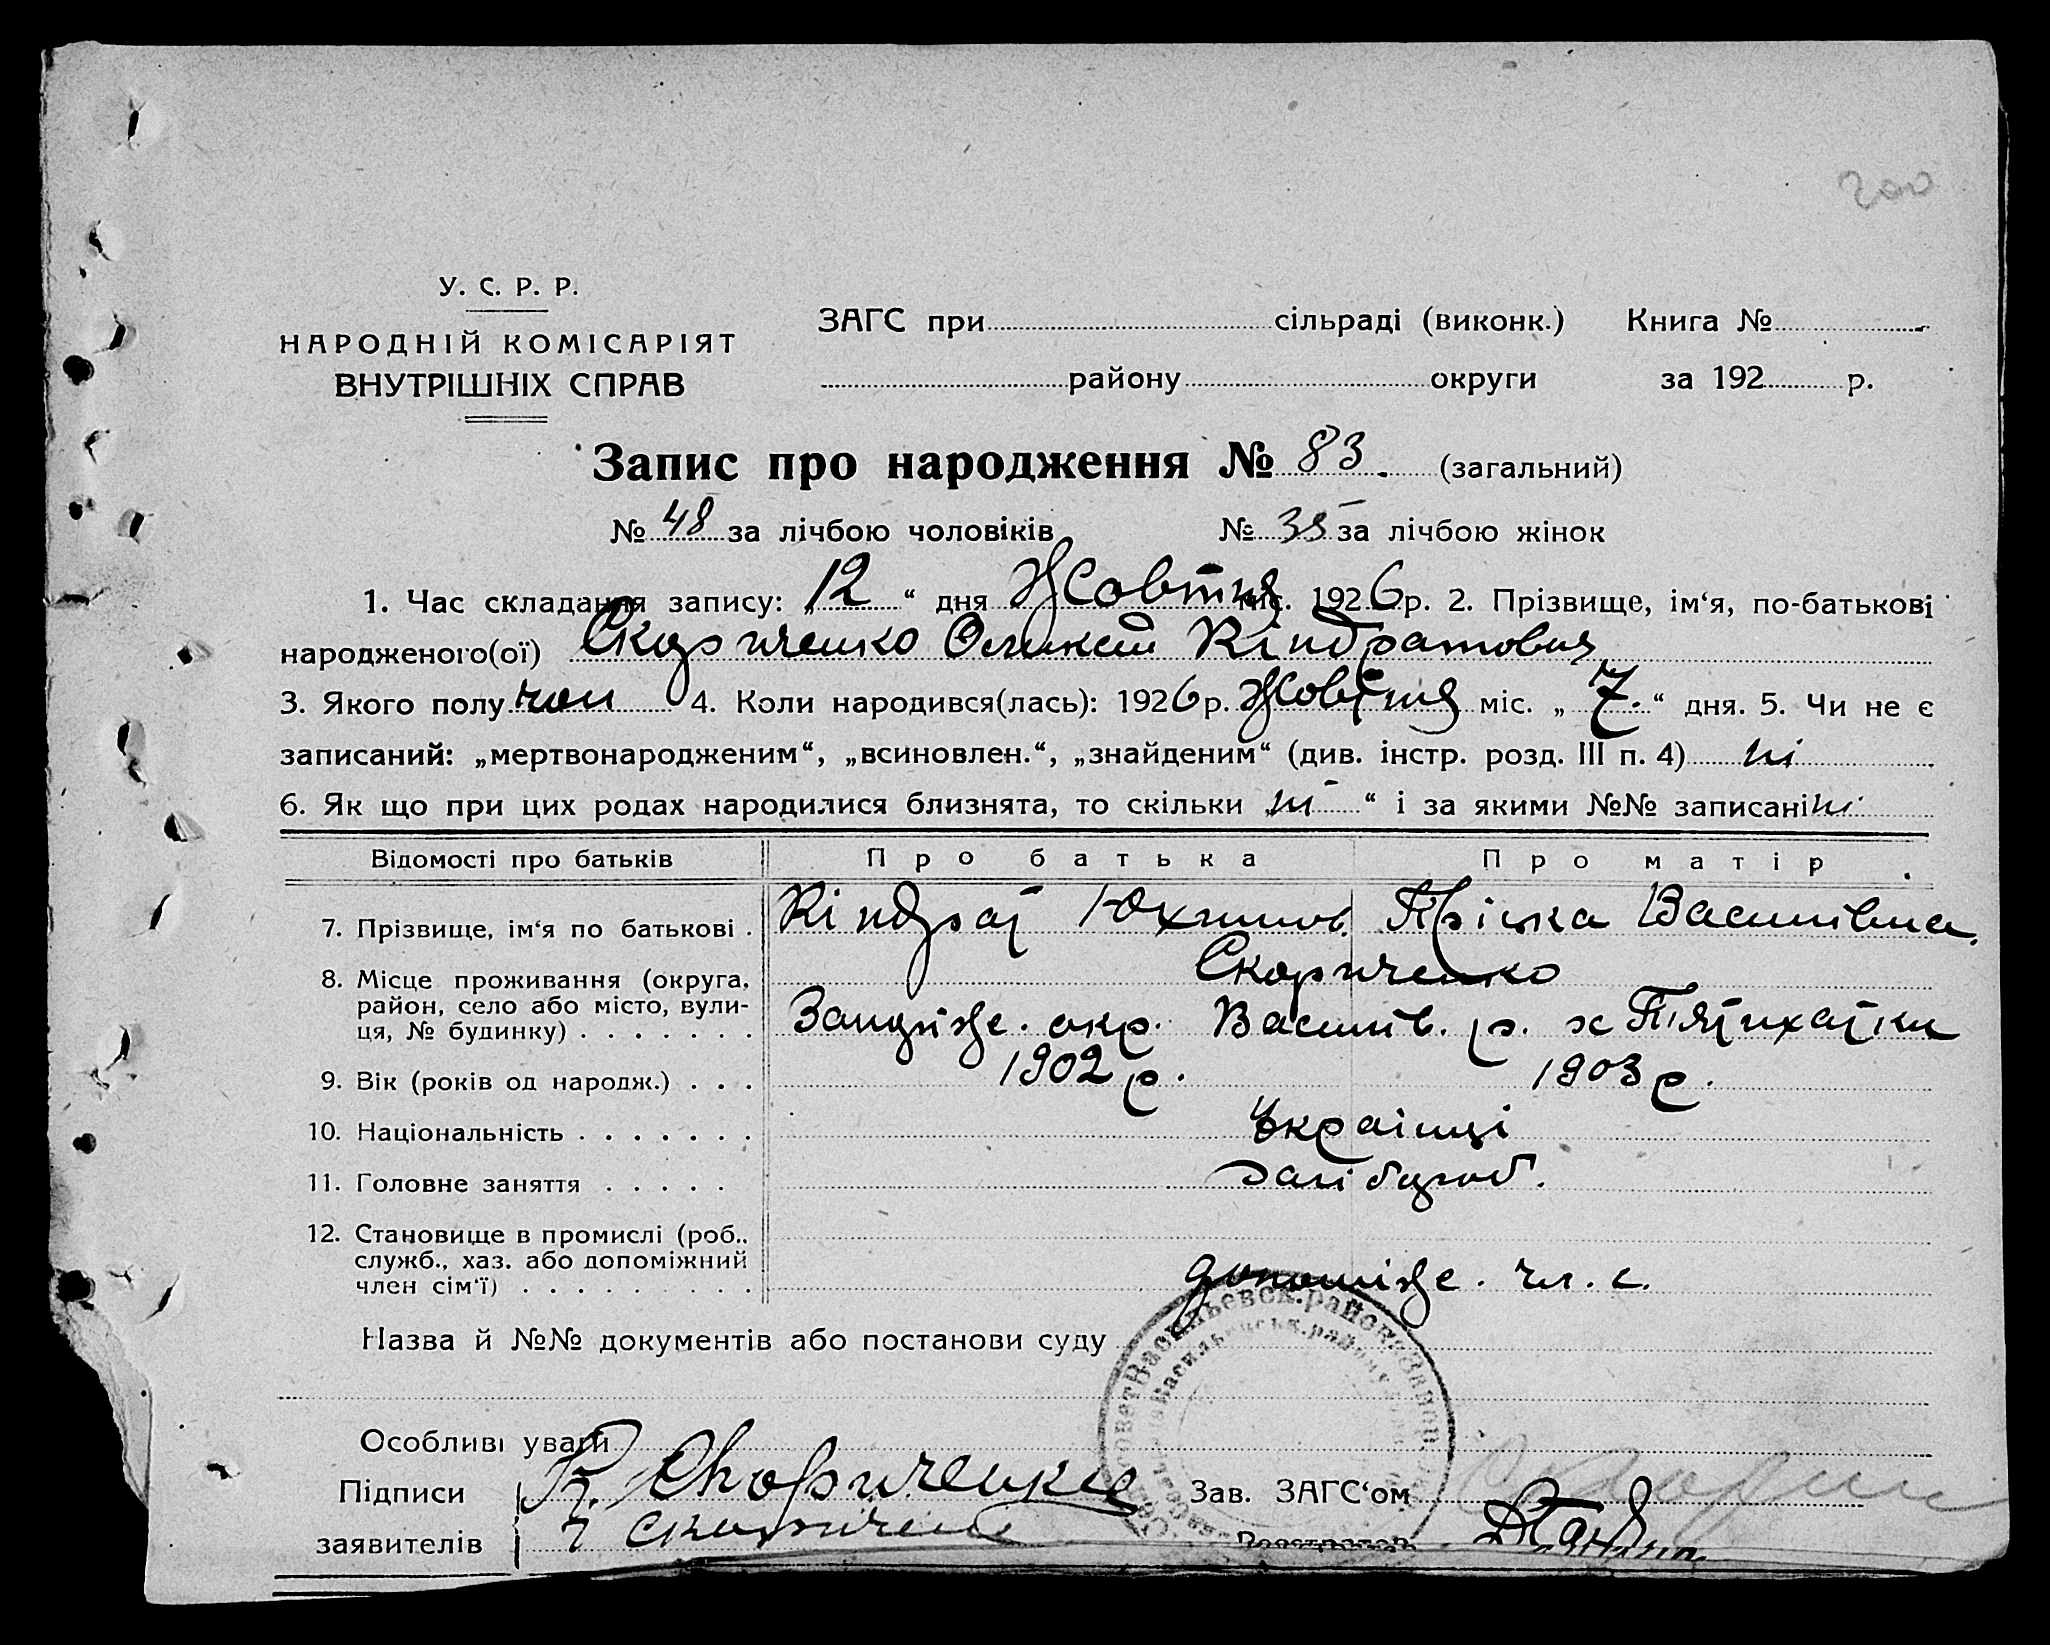 200
У. С. Р. Р.
НАРОДНІЙ КОМІСАРІЯТ
ВНУТРІШНІХ СПРАВ
ЗАГС при сільраді (виконк.) Книга №
району округи за 192 р.
Запис про народження № 83. (загальний)
№ 48 за лічбою чоловіків № 35 за лічбою жінок
1. Час складання запису: „12“ дня Жовтня міс. 1926 р. 2. Прізвище, ім‘я, по-батькові
народженого(ої) Скориченко Олексій Кіндратович
3. Якого полу чол 4. Коли народився(лась): 1926 р. Жовтня міс. „7.“ дня. 5. Чи не є
записаний: „мертвонародженим“, „всиновлен.“, „знайденим“ (див. інстр. розд. III п. 4) ні
6. Як що при цих родах народилися близнята, то скільки „ні“ і за якими №№ записані ні
Відомості про батьків Про батька Про матір
7. Прізвище, ім‘я по батькові . Кіндрат Юхимов. Пріська Василівна.
Скориченко
8. Місце проживання (округа,
район, село або місто, вули-
ця, № будинку) . . . . . . . Запоріже. окр. Василів. р. х П'ятихатки
9. Вік (років од народж.) . . . 1902 р. 1903 р.
10. Національність . . . . . . . Українці
11. Головне заняття . . . . . хлібороб.
12. Становище в промислі (роб.,
служб., хаз. або допоміжний
член сім‘ї) . . . . . . . . . допоміже. чл. с.
Назва й №№ документів або постанови суду
Особливі уваги
Підписи К. Скориченко Зав. ЗАГС‘ом
заявителів Реєстратор